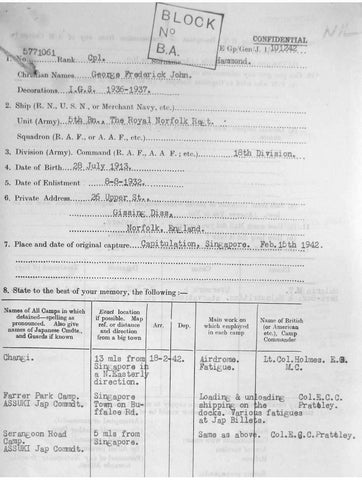 BLOCK
No
B.A.
CONFIDENTIAL
E Gp/Gen/J. 1 101242
5771061
1. No. Rank Cpl. Surname Hammond.
Christian Names George Frederick John.
Decorations I.G.S. 1936-1937.
2. Ship (R. N., U. S. N., or Merchant Navy, etc.)
Unit (Army) 5th Bn., The Royal Norfolk Regt.
Squadron (R. A. F., or A. A. F., etc.)
3. Division (Army). Command (R. A. F., A. A. F.; etc.) 18th Division.
4. Date of Birth 28 July 1913.
5. Date of Enlistment 8-8-1932.
6. Private Address 26 Upper St.,
Gissing Diss,
Norfolk, England.
7. Place and date of original capture Capitulation, Singapore. Feb. 15th 1942.
8. State to the best of your memory, the following :—
Names of All Camps in which detained—spelling as pronounced. Also give names of Japanese Comdts. and Guards if known
Exact location if possible. Map ref. or distance and direction from a big town
Arr.
Dep.
Main work on which employed in each camp
Name of British (or American etc.), Camp Commander
Changi. 13 mls from 18-2-42. Airdrome. Lt.Col.Holmes. E.G.
Singapore in Fatigue. M.C.
a N.Easterly
direction.
Farrer Park Camp. Singapore Loading & unloading Col.E.C.C.
ASSUKI Jap Commdt. Town on Bu- shipping on the Prattley.
ffaloe Rd. docks. Various fatigues
at Jap Billets.
Serangoon Road 5 mls from Same as above. Col.E.C.C.Prattley.
Camp. Singapore.
ASSUKI Jap Commdt.